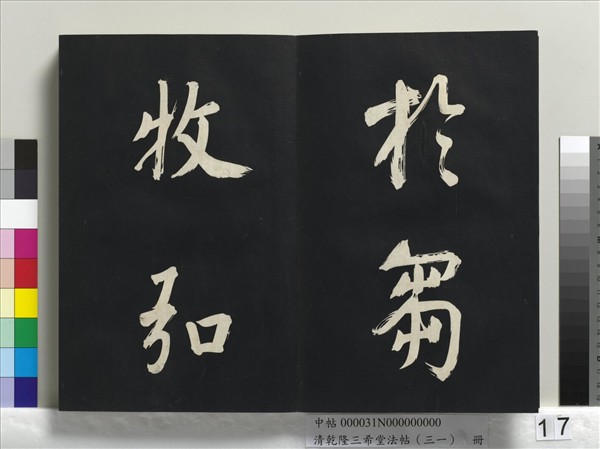 於芻
牧弘
中帖 000031N000000000
清乾隆三希堂法帖(三一) 冊
17